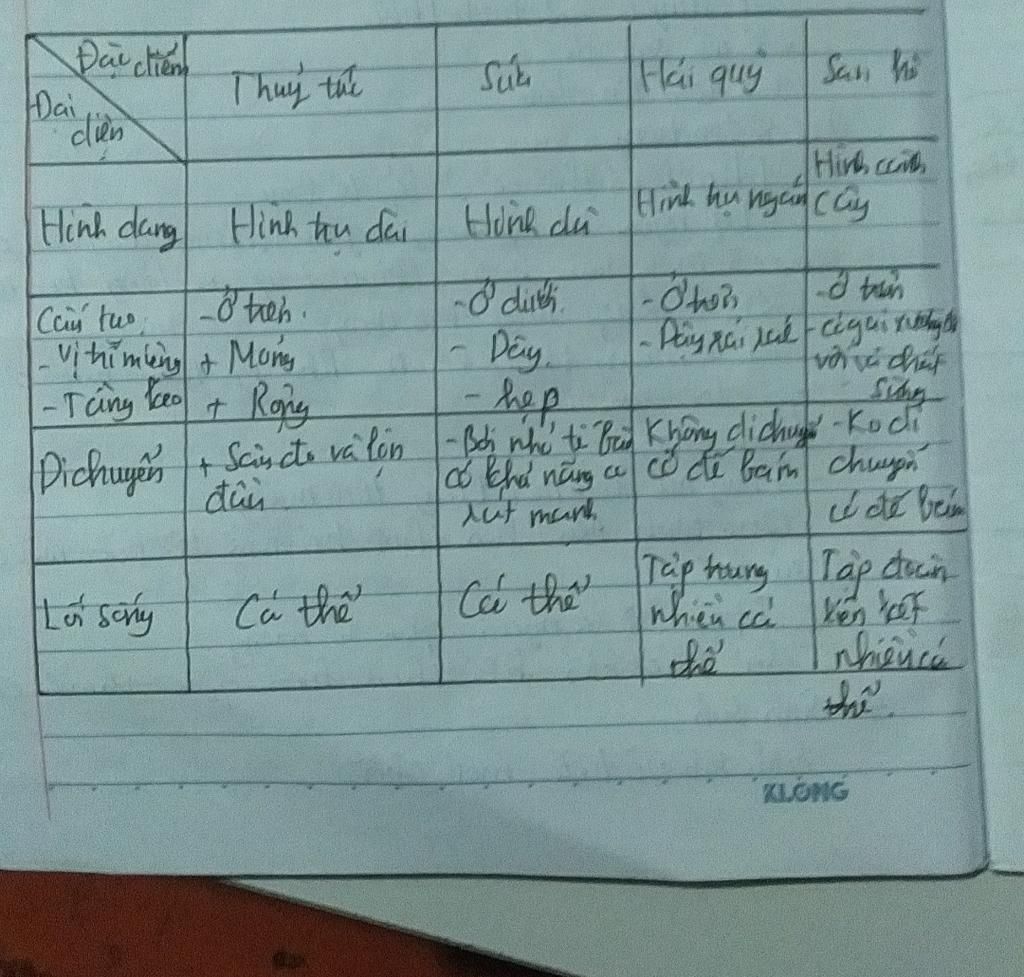 Đặc điểm
Đại diện
Thuỷ tức
Sứa
Hải quỳ
San hô
Hình dạng
Hình trụ dài
Hình dù
Hình trụ ngắn
Hình cành
cây
Cấu tạo
- Vị trí miệng
- Tầng keo
- Ở trên.
+ Mỏng
+ Rộng
- Ở dưới.
- Dày.
- hẹp
- Ở trên
- Dày, rải rác
- Ở trên
- có gai xương đá
vôi và chất
sừng
Di chuyển
+ Sâu đo và lộn
đầu
- Bơi nhờ tế bào
có khả năng co
rút mạnh
Không di chuyển
có đế bám
- Ko di
chuyển
có đế bám
Lối sống
Cá thể
Cá thể
Tập trung
nhiều cá
thể
Tập đoàn
liên kết
nhiều cá
thể.
KLONG